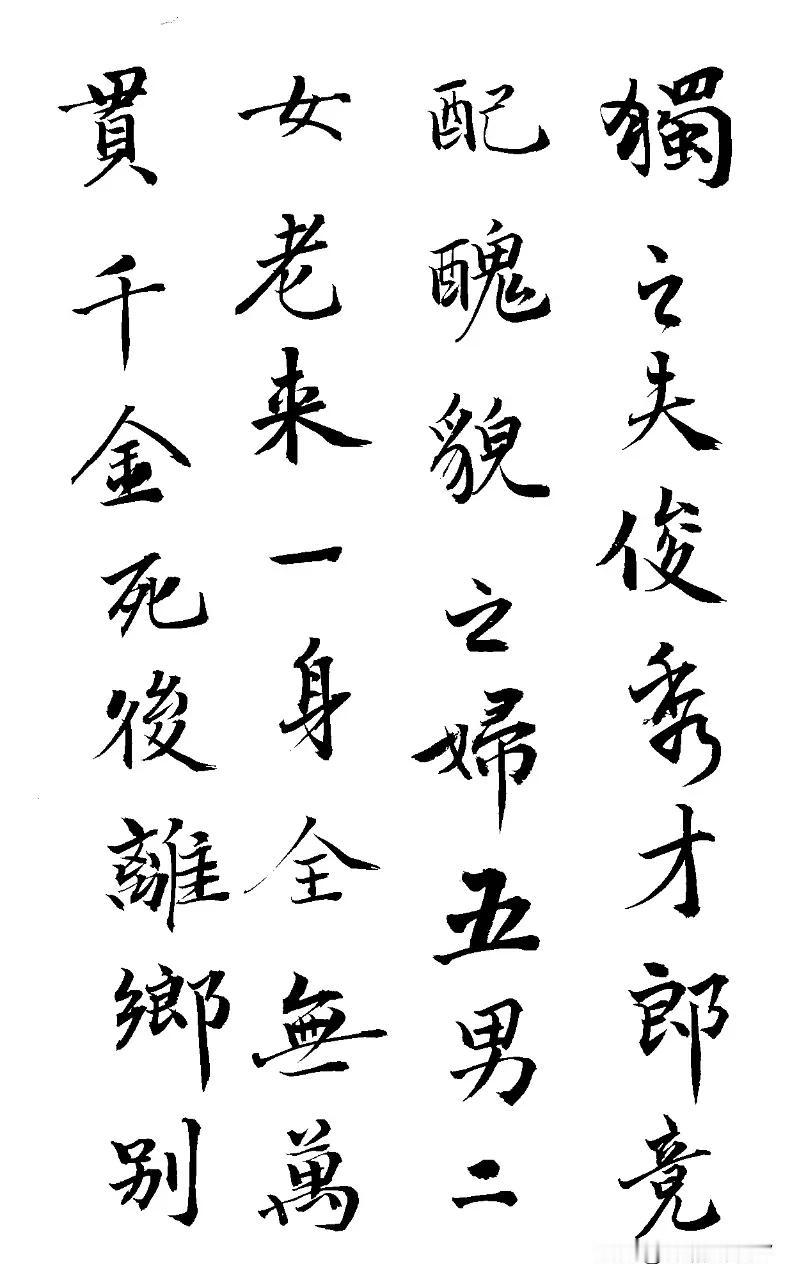 獨之夫俊秀才郎竟
配醜貌之婦五男二
女老来一身全無萬
貫千金死後離鄉别